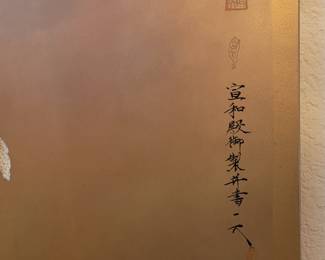 宣和殿御製并書一天